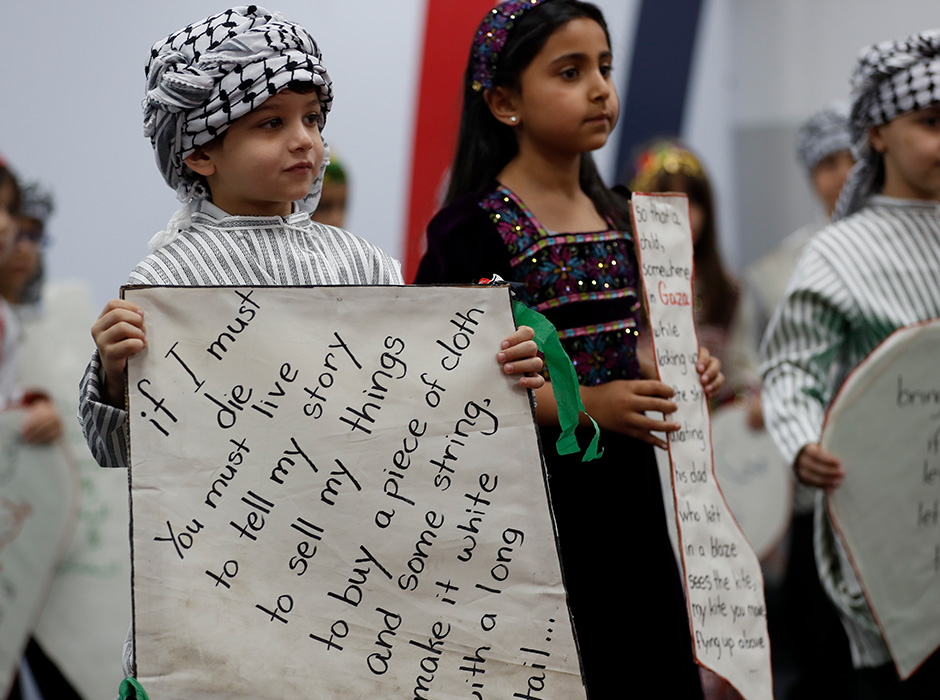 if I must
die
You must live
to tell my story
to sell my things
to buy a piece of cloth
and some string,
make it white
with a long
tail...
so that a
child,
somewhere
in Gaza
while
looking up
his dad
who left
in a blaze
sees the kite,
my kite you made
flying up above